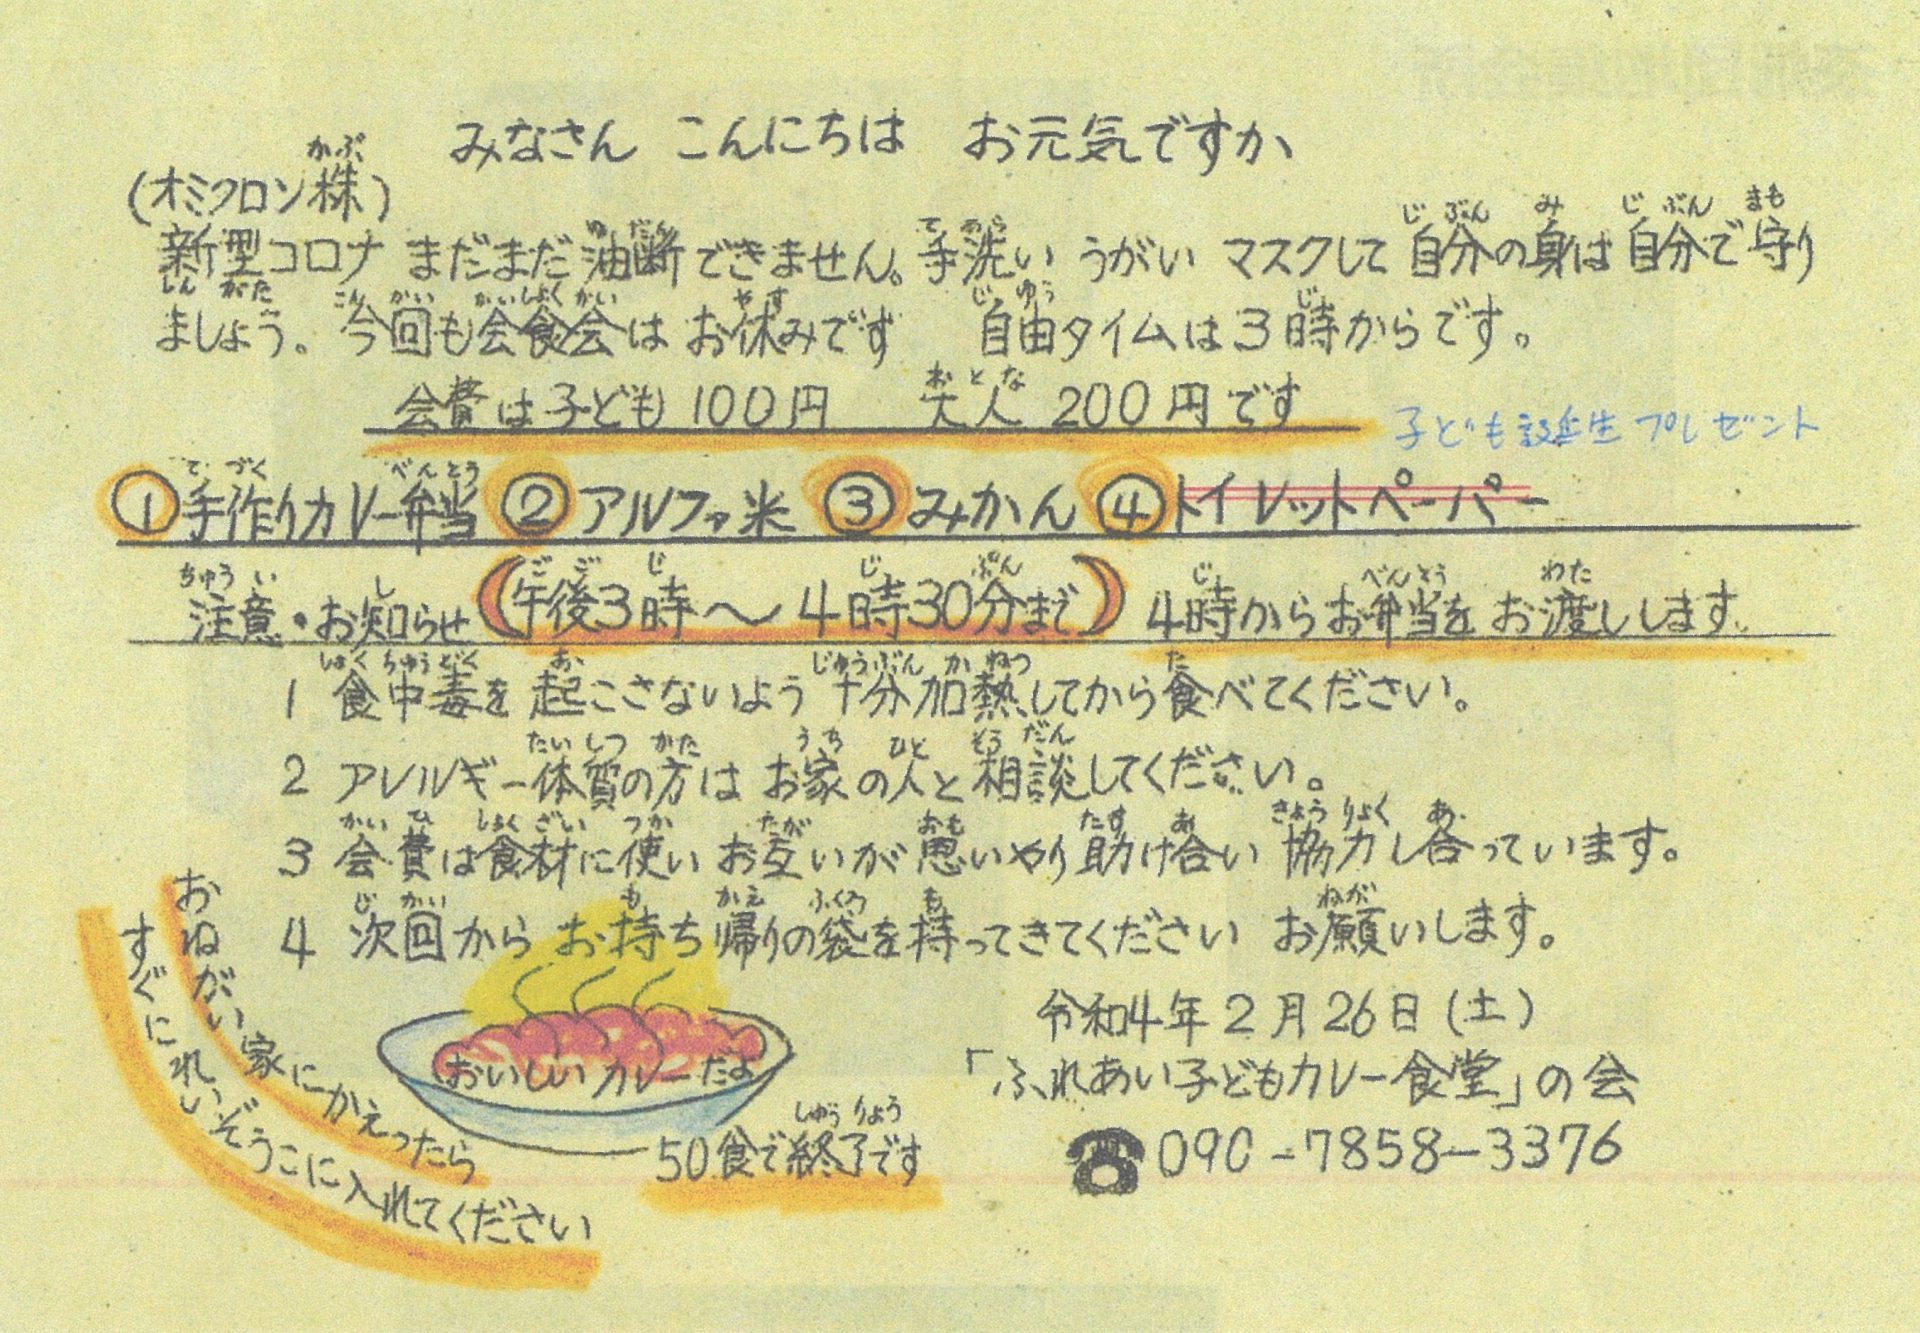 みなさん こんにちは お元気ですか
(オミクロン株)
新型コロナ まだまだ油断できません。手洗い うがい マスクして 自分の身は 自分で守り
ましょう。 今回も会食会は お休みです 自由タイムは3時からです。
会費は子ども 100円 大人 200円です
子ども誕生プレゼント
①手作りカレー弁当 ②アルファ米 ③みかん ④トイレットペーパー
注意・お知らせ (午後3時〜4時30分まで) 4時からお弁当を お渡しします。
1 食中毒を 起こさないよう 十分加熱してから食べてください。
2 アレルギー体質の方は お家の人と 相談してください。
3 会費は食材に使い お互いが 思いやり 助け合い 協力し合っています。
4 次回から お持ち帰りの袋を持ってきてください お願いします。
おねがい 家にかえったら
すぐにれいぞうこに入れてください
おいしいカレーだよ
50食で終了です
令和4年2月26日(土)
「ふれあい子どもカレー食堂」の会
☎090-7858-3376